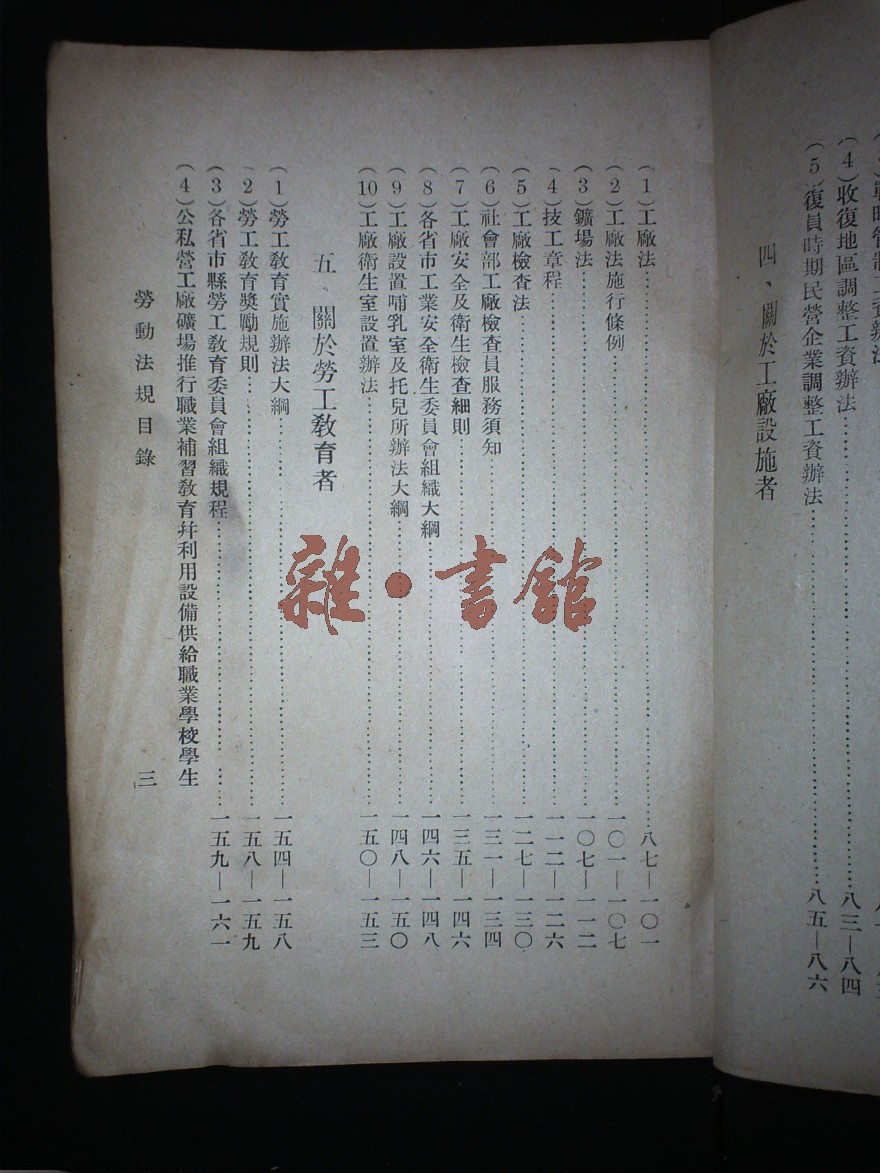 (4)收復地區調整工資辦法……八三—八四
(5)復員時期民營企業調整工資辦法……八五—八六
四、關於工廠設施者
(1)工廠法……八七—一〇一
(2)工廠法施行條例……一〇一—一〇七
(3)鑛場法……一〇七—一一二
(4)技工章程……一一二—一二六
(5)工廠檢查法……一二七—一三〇
(6)社會部工廠檢查員服務須知……一三一—一三四
(7)工廠安全及衛生檢查細則……一三五—一四六
(8)各省市工業安全衛生委員會組織大綱……一四六—一四八
(9)工廠設置哺乳室及托兒所辦法大綱……一四八—一五〇
(10)工廠衛生室設置辦法……一五〇—一五三
五、關於勞工教育者
(1)勞工教育實施辦法大綱……一五四—一五八
(2)勞工教育獎勵規則……一五八—一五九
(3)各省市縣勞工教育委員會組織規程……一五九—一六一
(4)公私營工廠礦場推行職業補習教育幷利用設備供給職業學校學生
勞動法規目錄 三
雜·書館